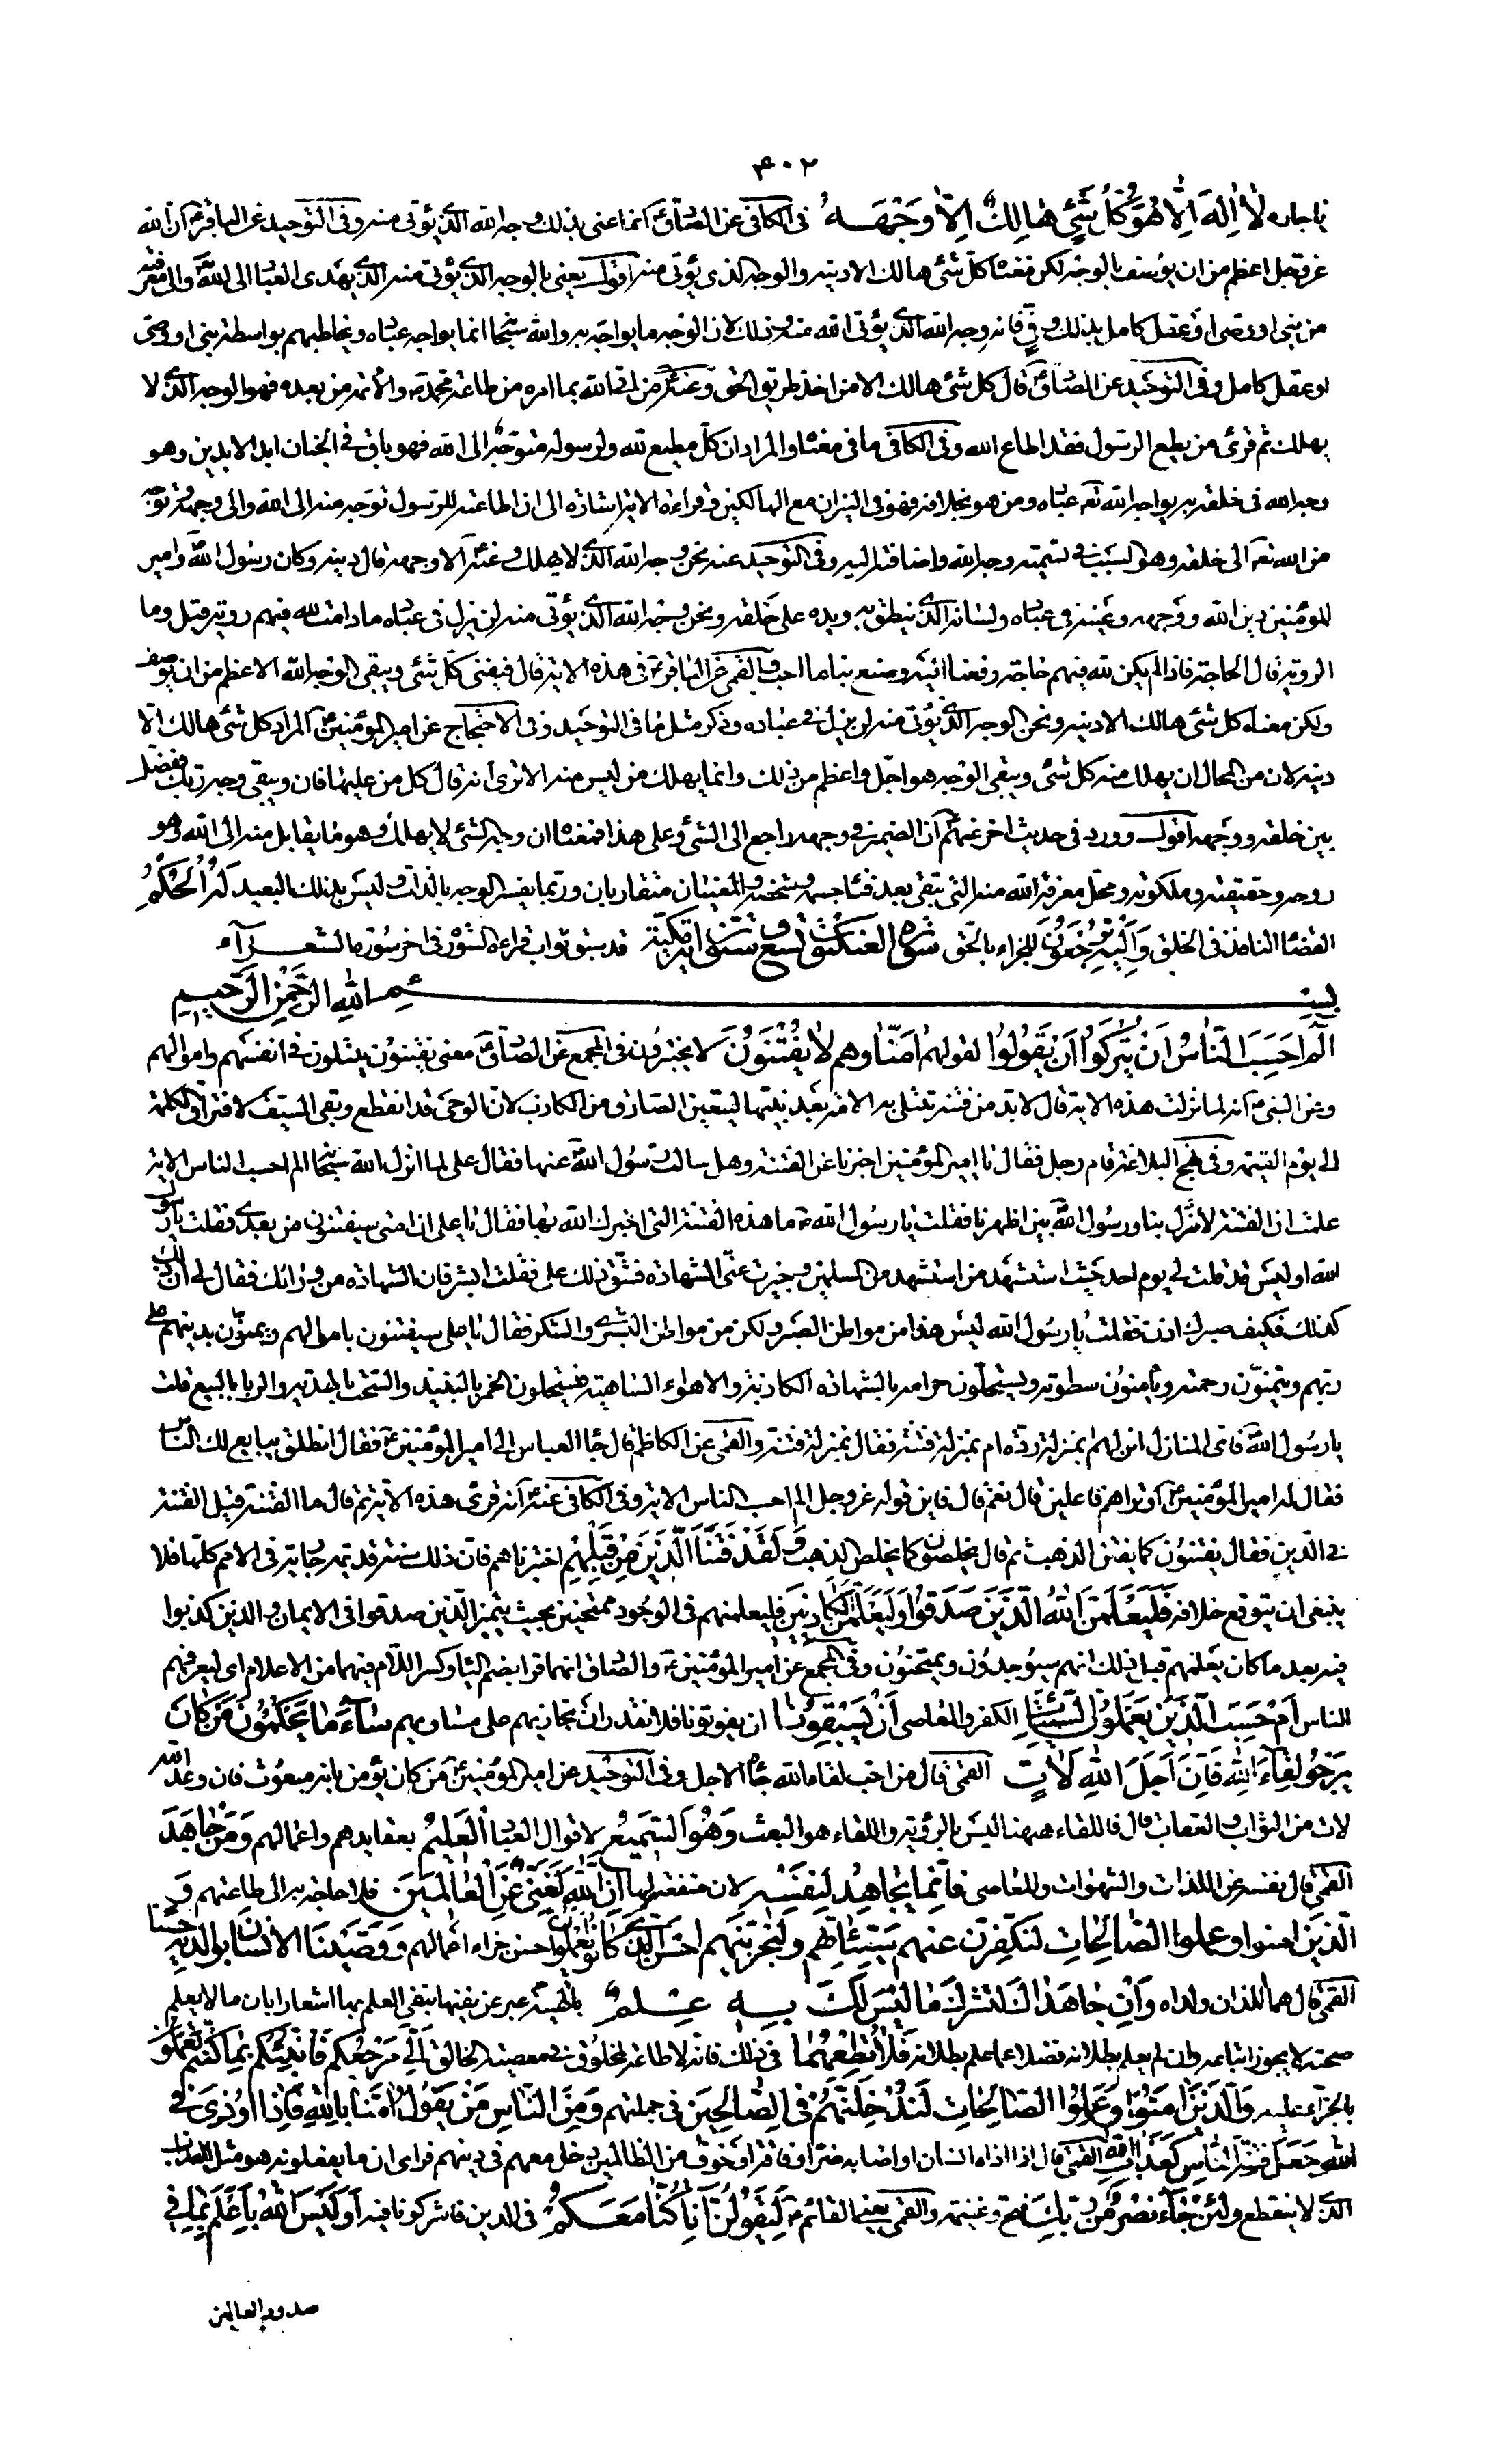 ۴۰۲
لا اله الا هو كل شئ هالك الا وجهه فى الكافى عن الصادق ع انما عنى بذلك وجه الله الذى يؤتى منه وفى التوحيد عن الباقر ع ان الله
عز وجل اعظم من ان يوصف بالوجه لكن معناه كل شئ هالك الا دينه والوجه الذى يؤتى منه اقول يعنى بالوجه الذى يؤتى منه الذى يهدى العباد الى الله والى معرفته
من نبى او وصى او عقل كامل بذلك وفى فانه وجه الله الذى يؤتى الله منه وذلك لان الوجه ما يواجه به والله سبحانه انما يواجه عباده ويخاطبهم بواسطة نبى او وصى
او عقل كامل وفى التوحيد عن الصادق ع قال كل شئ هالك الا من اخذ طريق الحق وعنه ع من اتى الله بما امر به من طاعة محمد ص والائمة من بعده فهو الوجه الذى لا
يهلك ثم قرئ من يطع الرسول فقد اطاع الله وفى الكافى ما فى معناه والمراد ان كل مطيع لله ولرسوله متوجه الى الله فهو باق فى الجنان ابد الابدين وهو
وجه الله فى خلقه به يواجه الله تعم عباده ومن هو بخلافه فهو فى النيران مع الهالكين وفى قراءة الاية اشارة الى ان اطاعته للرسول توجه منه الى الله والى وجهه وتوجه
من الله تعم الى خلقه وهو السبب فى تسميته وجه الله واضافته اليه وفى التوحيد عنه نحن وجه الله الذى لا يهلك وعنه ع الا وجهه قال دينه وكان رسول الله ص وامير
المؤمنين دين الله ووجهه وعينه فى عباده ولسانه الذى ينطق به ويده على خلقه ونحن وجه الله الذى يؤتى منه لن نزل فى عباده ما دامت لله فيهم روية قيل وما
الروية قال الحاجة فاذا لم يكن لله فيهم حاجة رفعنا اليه وصنع بنا ما احب والقمى عن الباقر ع فى هذه الاية قال فيفنى كل شئ ويبقى الوجه الله الاعظم من ان يوصف
ولكن معناه كل شئ هالك الا دينه ونحن الوجه الذى يؤتى منه لن نزل فى عباده وذكر مثل ما فى التوحيد وفى الاحتجاج عن امير المؤمنين ع المراد كل شئ هالك الا
دينه لان من المحال ان يهلك منه كل شئ ويبقى الوجه هو اجل واعظم من ذلك وانما يهلك من ليس منه الا ترى انه قال كل من عليها فان ويبقى وجه ربك ففصل
بين خلقه ووجهه اقول وورد فى حديث اخر عنهم ع ان الضمير فى وجهه راجع الى الشئ وعلى هذا فمعناه ان وجه الشئ لا يهلك وهو ما يقابل منه الى الله وهو
روحه وحقيقته وملكوته ومحل معرفة الله منه التى تبقى بعد فناء جسمه وشخصه والمعنيان متقاربان وربما يفسر الوجه بالذات وليس بذلك البعيد له الحكم
القضاء النافذ فى الخلق واليه ترجعون للجزاء بالحق سورة العنكبوت تسع وستون اية مكية قد سبق ثواب قراءة السورة فى اخر سورة الشعرآء
بسم الله الرحمن الرحيم
الم احسب الناس ان يتركوا ان يقولوا لقولهم امنا وهم لا يفتنون لا يختبرون فى المجمع عن الصادق ع معنى يفتنون يبتلون فى انفسهم واموالهم
وعن النبى ص انه لما نزلت هذه الاية قال لا بد من فتنة تبتلى به الامة بعد نبيها ليتعين الصادق من الكاذب لان الوحى قد انقطع وبقى السيف وافتراق الكلمة
الى يوم القيمة وفى نهج البلاغة قام رجل فقال يا امير المؤمنين اخبرنا عن الفتنة وهل سالت رسول الله ص عنها فقال على لما انزل الله سبحانه الم احسب الناس الاية
علمت ان الفتنة لا تنزل بنا ورسول الله ص بين اظهرنا فقلت يا رسول الله ص ما هذه الفتنة التى اخبرك الله بها فقال يا على ان امتى سيفتنون من بعدى فقلت يا رسول
الله اوليس قد قلت لى يوم احد حيث استشهد من استشهد من المسلمين وحيزت عنى الشهادة فشق ذلك على فقلت ابشر فان الشهادة من ورائك فقال لى ان ذلك
كذلك فكيف صبرك اذن فقلت يا رسول الله ليس هذا من مواطن الصبر ولكن من مواطن البشرى والشكر فقال يا على سيفتنون باموالهم ويمنون بدينهم على
ربهم ويتمنون رحمته ويأمنون سطوته ويستحلون حرامه بالشبهات الكاذبة والاهواء الساهية فيستحلون الخمر بالنبيذ والسحت بالهدية والربا بالبيع قلت
يا رسول الله ص فاى المنازل انزلهم ابمنزلة ردة ام بمنزلة فتنة فقال بمنزلة فتنة والقمى عن الكاظم قال جاء العباس الى امير المؤمنين ع فقال انطلق يبايع لك الناس
فقال له امير المؤمنين ع اوتراهم فاعلين قال نعم قال فاين قوله عز وجل الم احسب الناس الاية وفى الكافى عنه ع انه قرئ هذه الاية ثم قال ما الفتنة قيل الفتنة
فى الدين فقال يفتنون كما يفتن الذهب ثم قال يخلصون كما يخلص الذهب ولقد فتنا الذين من قبلهم اختبرناهم فان ذلك سنة قديمة جارية فى الامم كلها فلا
ينبغى ان يتوقع خلافه فليعلمن الله الذين صدقوا وليعلمن الكاذبين فليعلمنهم فى الوجود ممتحنين بحيث يتميز الذين صدقوا فى الايمان والذين كذبوا
فيه بعد ما كان يعلمهم قبل ذلك انهم سيوجدون ويمتحنون وفى المجمع عن امير المؤمنين ع والصادق انهما قرا بضم الياء وكسر اللام فيهما من الاعلام اى ليعرفنهم
للناس ام حسب الذين يعملون السيئات الكفر والمعاصى ان يسبقونا ان يفوتونا فلا نقدر ان نجازيهم على مساويهم ساء ما يحكمون من كان
يرجو لقاء الله فان اجل الله لات القمى قال من احب لقاء الله جاءه الاجل وفى التوحيد عن امير المؤمنين ع من كان يؤمن بانه مبعوث فان وعد الله
لات من الثواب والعقاب قال فاللقاء ههنا ليس بالرؤية واللقاء هو البعث وهو السميع لاقوال العباد العليم بعقايدهم واعمالهم ومن جاهد
القمى قال نفسه عن اللذات والشهوات والمعاصى فانما يجاهد لنفسه لان منفعته لها ان الله لغنى عن العالمين فلا حاجة به الى طاعتهم و
الذين امنوا وعملوا الصالحات لنكفرن عنهم سيئاتهم ولنجزينهم احسن الذى كانوا يعملون احسن جزاء اعمالهم ووصينا الانسان بوالديه حسنا
القمى قال هما اللذان ولداه وان جاهداك لتشرك ما ليس لك به علم بالهيته عبر عن نفيها بنفى العلم بها اشعارا بان ما لا يعلم
صحته لا يجوز اتباعه وان لم يعلم بطلانه فضلا عما علم بطلانه فلا تطعهما فى ذلك فانه لا طاعة لمخلوق فى معصية الخالق الى مرجعكم فانبئكم بما كنتم تعملون
بالجزاء عليه والذين امنوا وعملوا الصالحات لندخلنهم فى الصالحين فى جملتهم ومن الناس من يقول امنا بالله فاذا اوذى فى
الله جعل فتنة الناس كعذاب الله القمى قال اذا اذاه انسان او اصابه ضر او فاقة او خوف من الظالمين دخل معهم فى دينهم فراى ان ما يفعلونه هو مثل عذاب الله
الذى لا ينقطع ولئن جاء نصر من ربك فتح وغنيمة والقمى يعنى القائم ع ليقولن انا كنا معكم فى الدين فاشركونا فيه اوليس الله باعلم بما فى
صدور العالمين